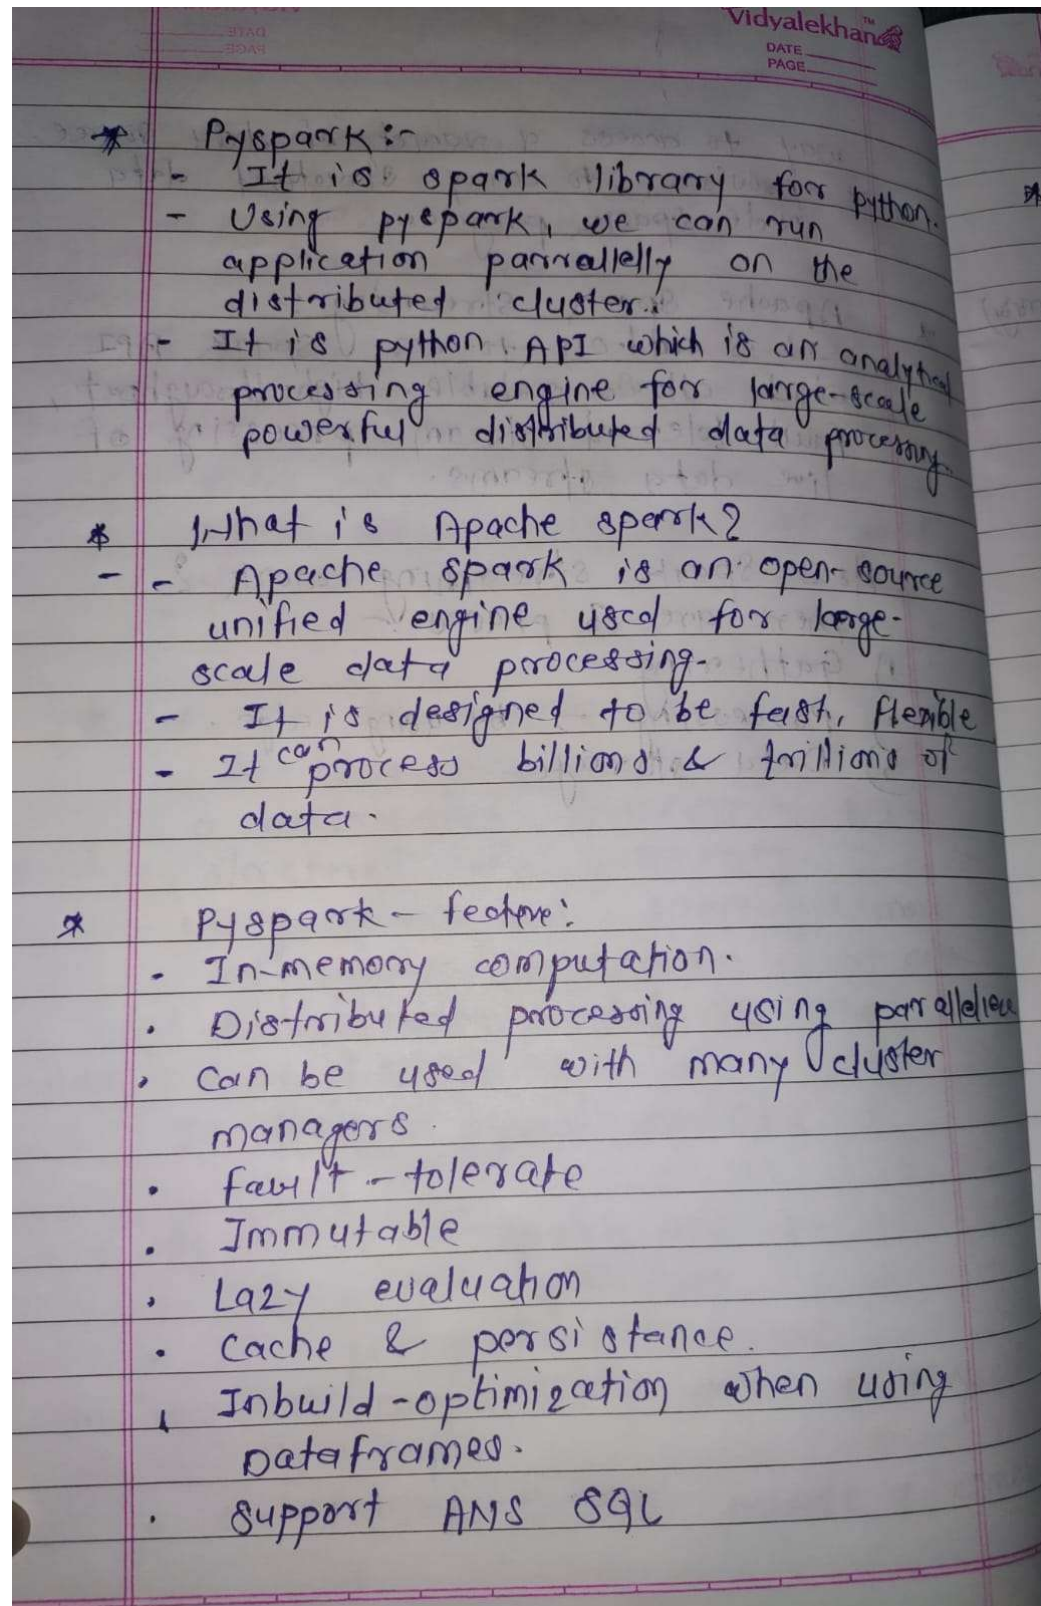 Vidyalekhan™
DATE
PAGE
* Pyspark :-
- It is spark library for python.
- Using pyspark, we can run
application parrallelly on the
distributed cluster.
- It is python API which is an analytical
processing engine for large-scale
powerful distributed data processing.
* What is Apache spark?
- - Apache spark is an open-source
unified engine used for large-
scale data processing.
- It is designed to be fast, flexible
- It can process billions & trillions of
data.
* Pyspark - feature:
- In-memory computation.
. Distributed processing using parallelize
. Can be used with many cluster
managers.
. fault-tolerate
. Immutable
. Lazy evaluation
. Cache & persistance.
. Inbuild-optimization when using
Dataframes.
. Support ANS SQL